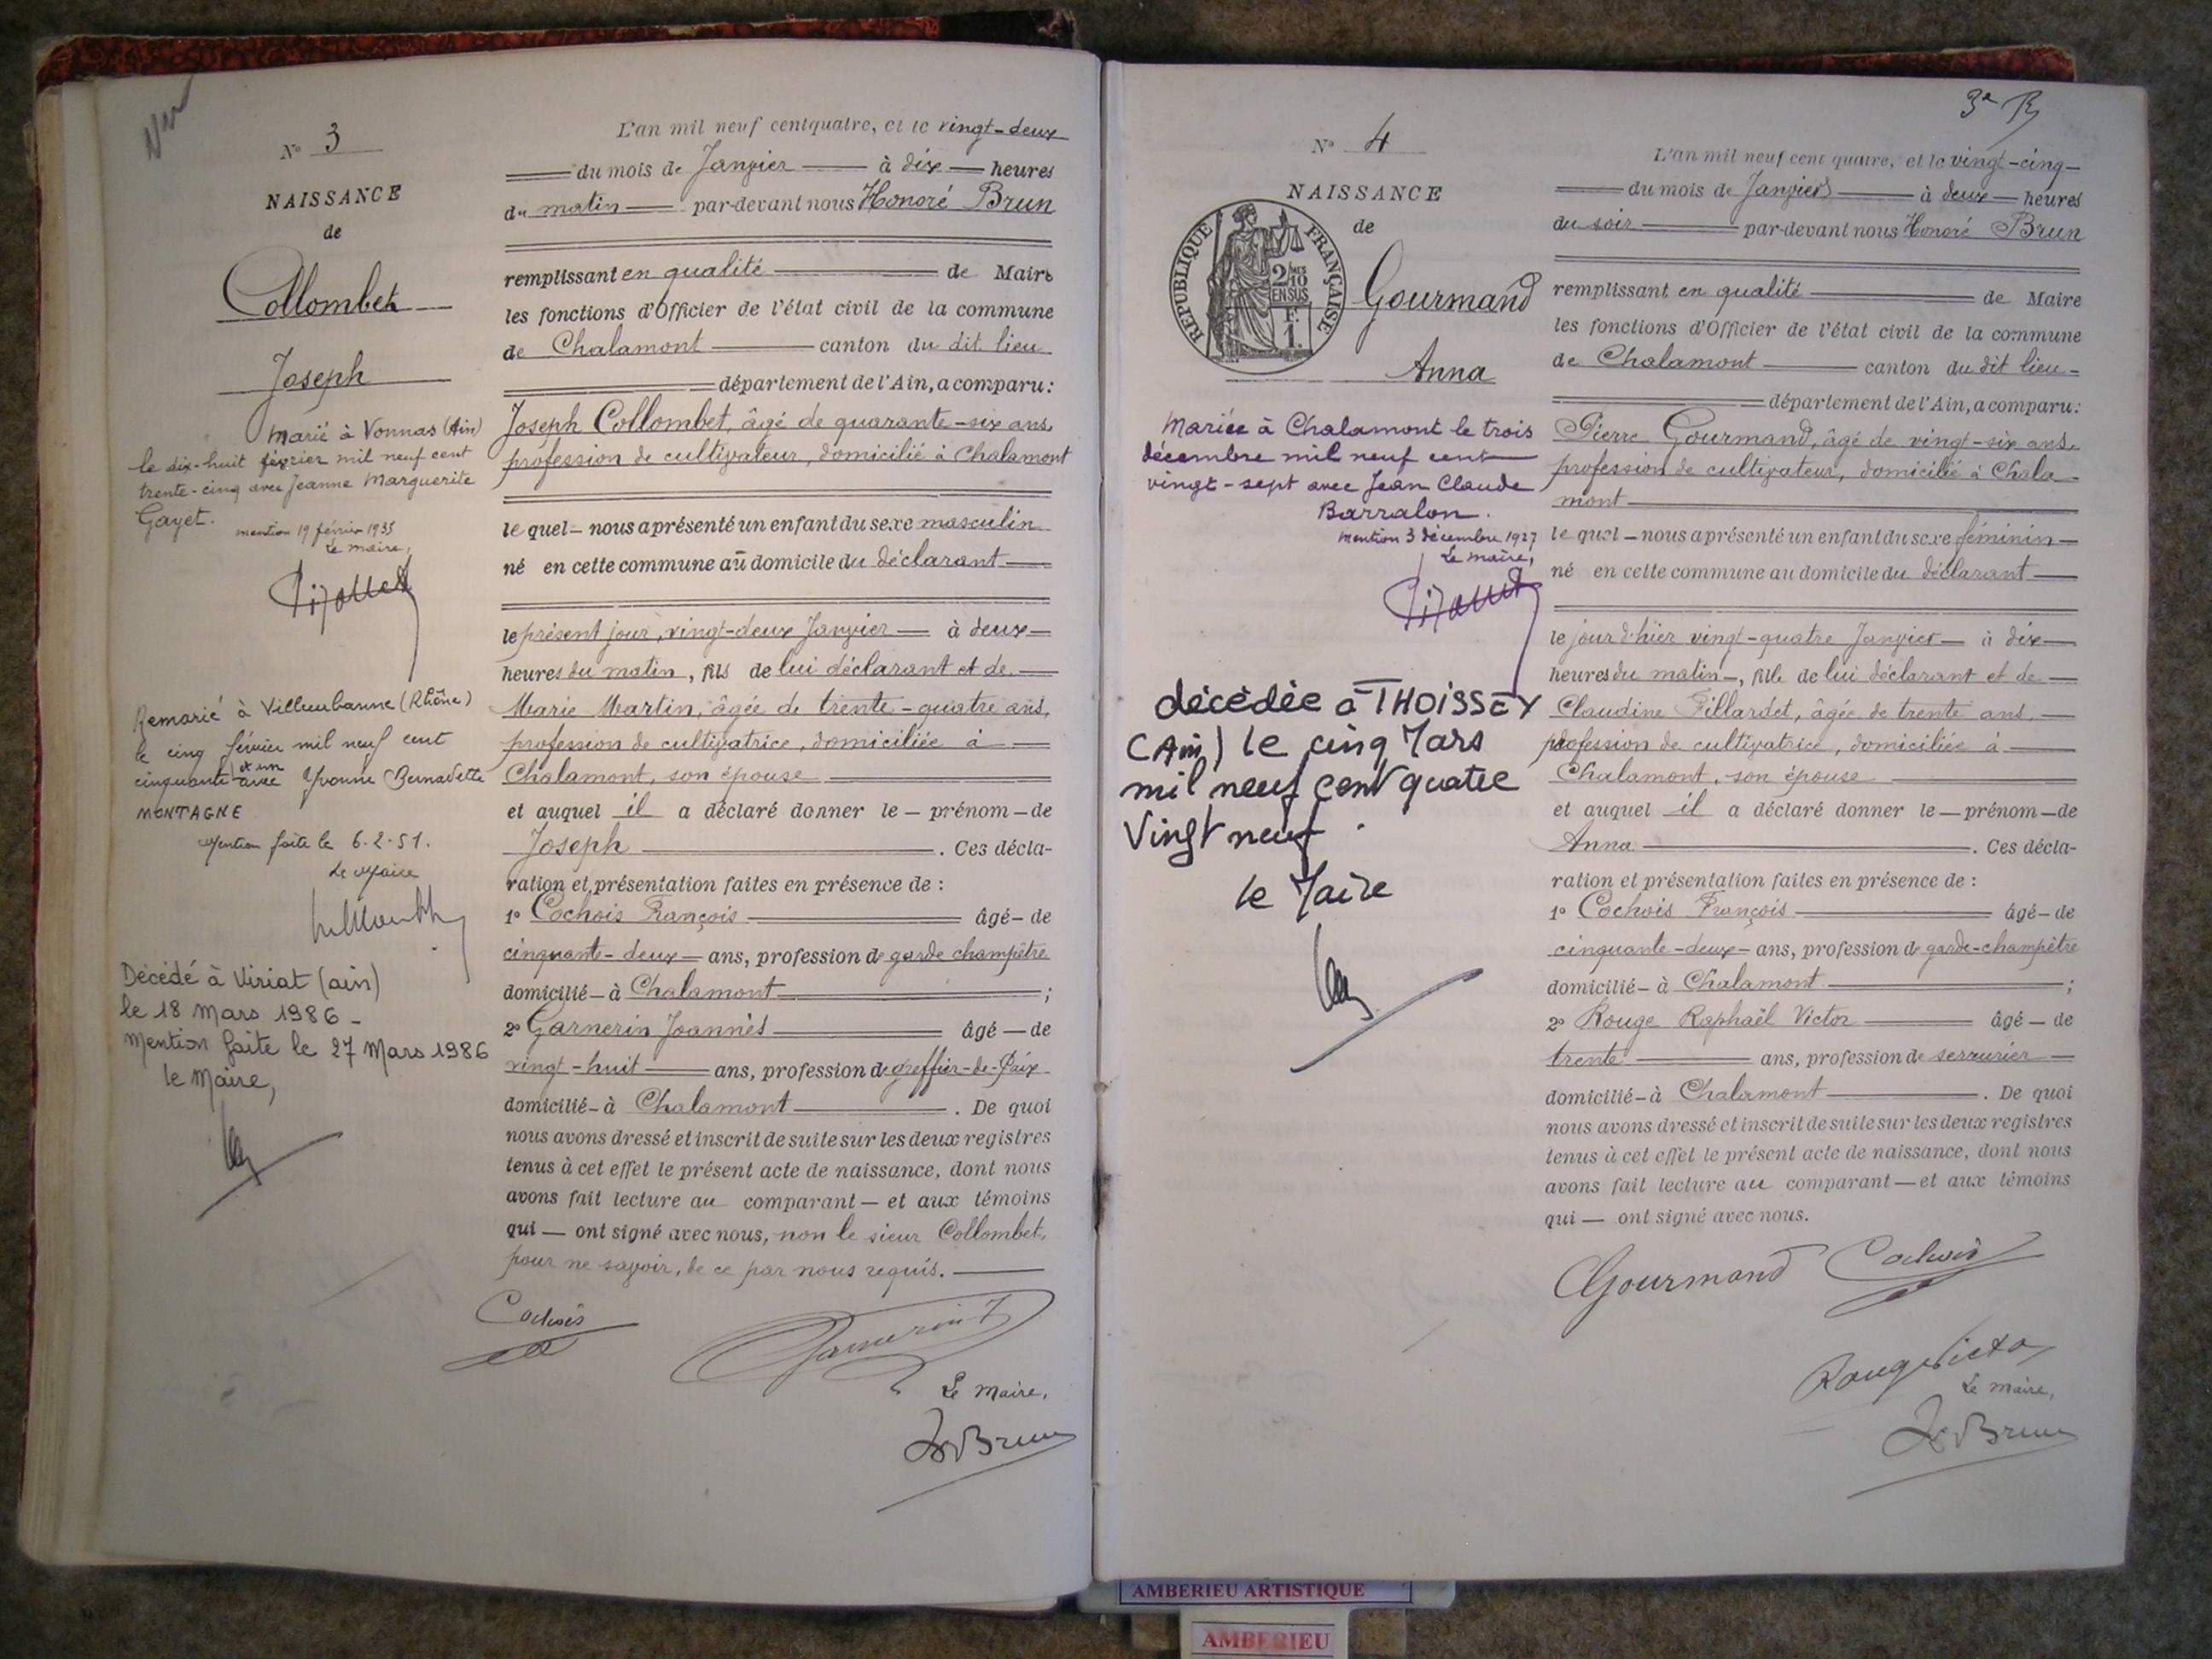 Nº 3
NAISSANCE
de
Collombet
Joseph
Marié à Vonnas (Ain)
le dix-huit février mil neuf cent
trente-cinq avec Jeanne Marguerite
Gayet.
mention 19 février 1935
Le maire,
Remarié à Villeurbanne (Rhône)
le cinq février mil neuf cent
et un
cinquante avec Yvonne Bernadette
MONTAGNE
Mention faite le 6.2.51.
Le Maire
Décédé à Viriat (ain)
le 18 Mars 1986 -
Mention faite le 27 Mars 1986
le Maire,
L'an mil neuf cent quatre, et le vingt-deux
du mois de Janvier à dix heures
du matin par-devant nous Honoré Brun
remplissant en qualité de Maire
les fonctions d'Officier de l'état civil de la commune
de Chalamont canton du dit lieu
département de l'Ain, a comparu:
Joseph Collombet, âgé de quarante-six ans,
profession de cultivateur, domicilié à Chalamont
le quel nous a présenté un enfant du sexe masculin
né en cette commune au domicile du déclarant
le présent jour, vingt-deux Janvier à deux
heures du matin, fils de lui déclarant et de
Marie Martin, âgée de trente-quatre ans,
profession de cultivatrice, domiciliée à
Chalamont, son épouse
et auquel il a déclaré donner le prénom de
Joseph. Ces décla-
ration et présentation faites en présence de :
1º Cochois François âgé de
cinquante-deux ans, profession de garde champêtre
domicilié à Chalamont ;
2º Garnerin Joannès âgé de
vingt-huit ans, profession de greffier-de-Paix
domicilié à Chalamont. De quoi
nous avons dressé et inscrit de suite sur les deux registres
tenus à cet effet le présent acte de naissance, dont nous
avons fait lecture au comparant et aux témoins
qui ont signé avec nous, non le sieur Collombet,
pour ne savoir, de ce par nous requis.
Cochois
Garnerin J
Le Maire,
Hé Brun
3e R
Nº 4
NAISSANCE
de
RÉPUBLIQUE FRANÇAISE
2/MES 10
EN SUS
F.
1.
Gourmand
Anna
Mariée à Chalamont le trois
décembre mil neuf cent
vingt-sept avec Jean Claude
Barralon.
Mention 3 décembre 1927
Le maire,
décédée à THOISSEY
(Ain) le cinq Mars
mil neuf cent quatre
Vingt neuf.
le Maire
L'an mil neuf cent quatre, et le vingt-cinq
du mois de Janvier à deux heures
du soir par-devant nous Honoré Brun
remplissant en qualité de Maire
les fonctions d'Officier de l'état civil de la commune
de Chalamont canton du dit lieu
département de l'Ain, a comparu:
Pierre Gourmand, âgé de vingt-six ans,
profession de cultivateur, domicilié à Chala
mont
le quel nous a présenté un enfant du sexe féminin
né en cette commune au domicile du déclarant
le jour d'hier vingt-quatre Janvier à dix
heures du matin, fille de lui déclarant et de
Claudine Pillardet, âgée de trente ans,
profession de cultivatrice, domiciliée à
Chalamont, son épouse
et auquel il a déclaré donner le prénom de
Anna. Ces décla-
ration et présentation faites en présence de :
1º Cochois François âgé de
cinquante-deux ans, profession de garde-champêtre
domicilié à Chalamont ;
2º Rouge Raphaël Victor âgé de
trente ans, profession de serrurier
domicilié à Chalamont. De quoi
nous avons dressé et inscrit de suite sur les deux registres
tenus à cet effet le présent acte de naissance, dont nous
avons fait lecture au comparant et aux témoins
qui ont signé avec nous.
Gourmand Cochois
Rouge Victor
Le maire,
Hé Brun
AMBERIEU ARTISTIQUE
AMBERIEU